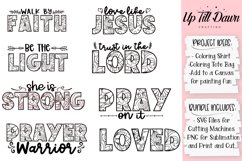 WALK BY
FAITH
love like
JESUS
BE THE
LIGHT
trust in the
LORD
she is
STRONG
PRAY
on it
PRAYER
Warrior
LOVED
Up Till Dawn
CRAFTING
PROJECT IDEAS:
Coloring Shirt
Coloring Tote Bag
Add to a Canvas
for painting fun
BUNDLE INCLUDES:
SVG Files for
Cutting Machines
PNG for Sublimation
and Print and Cut